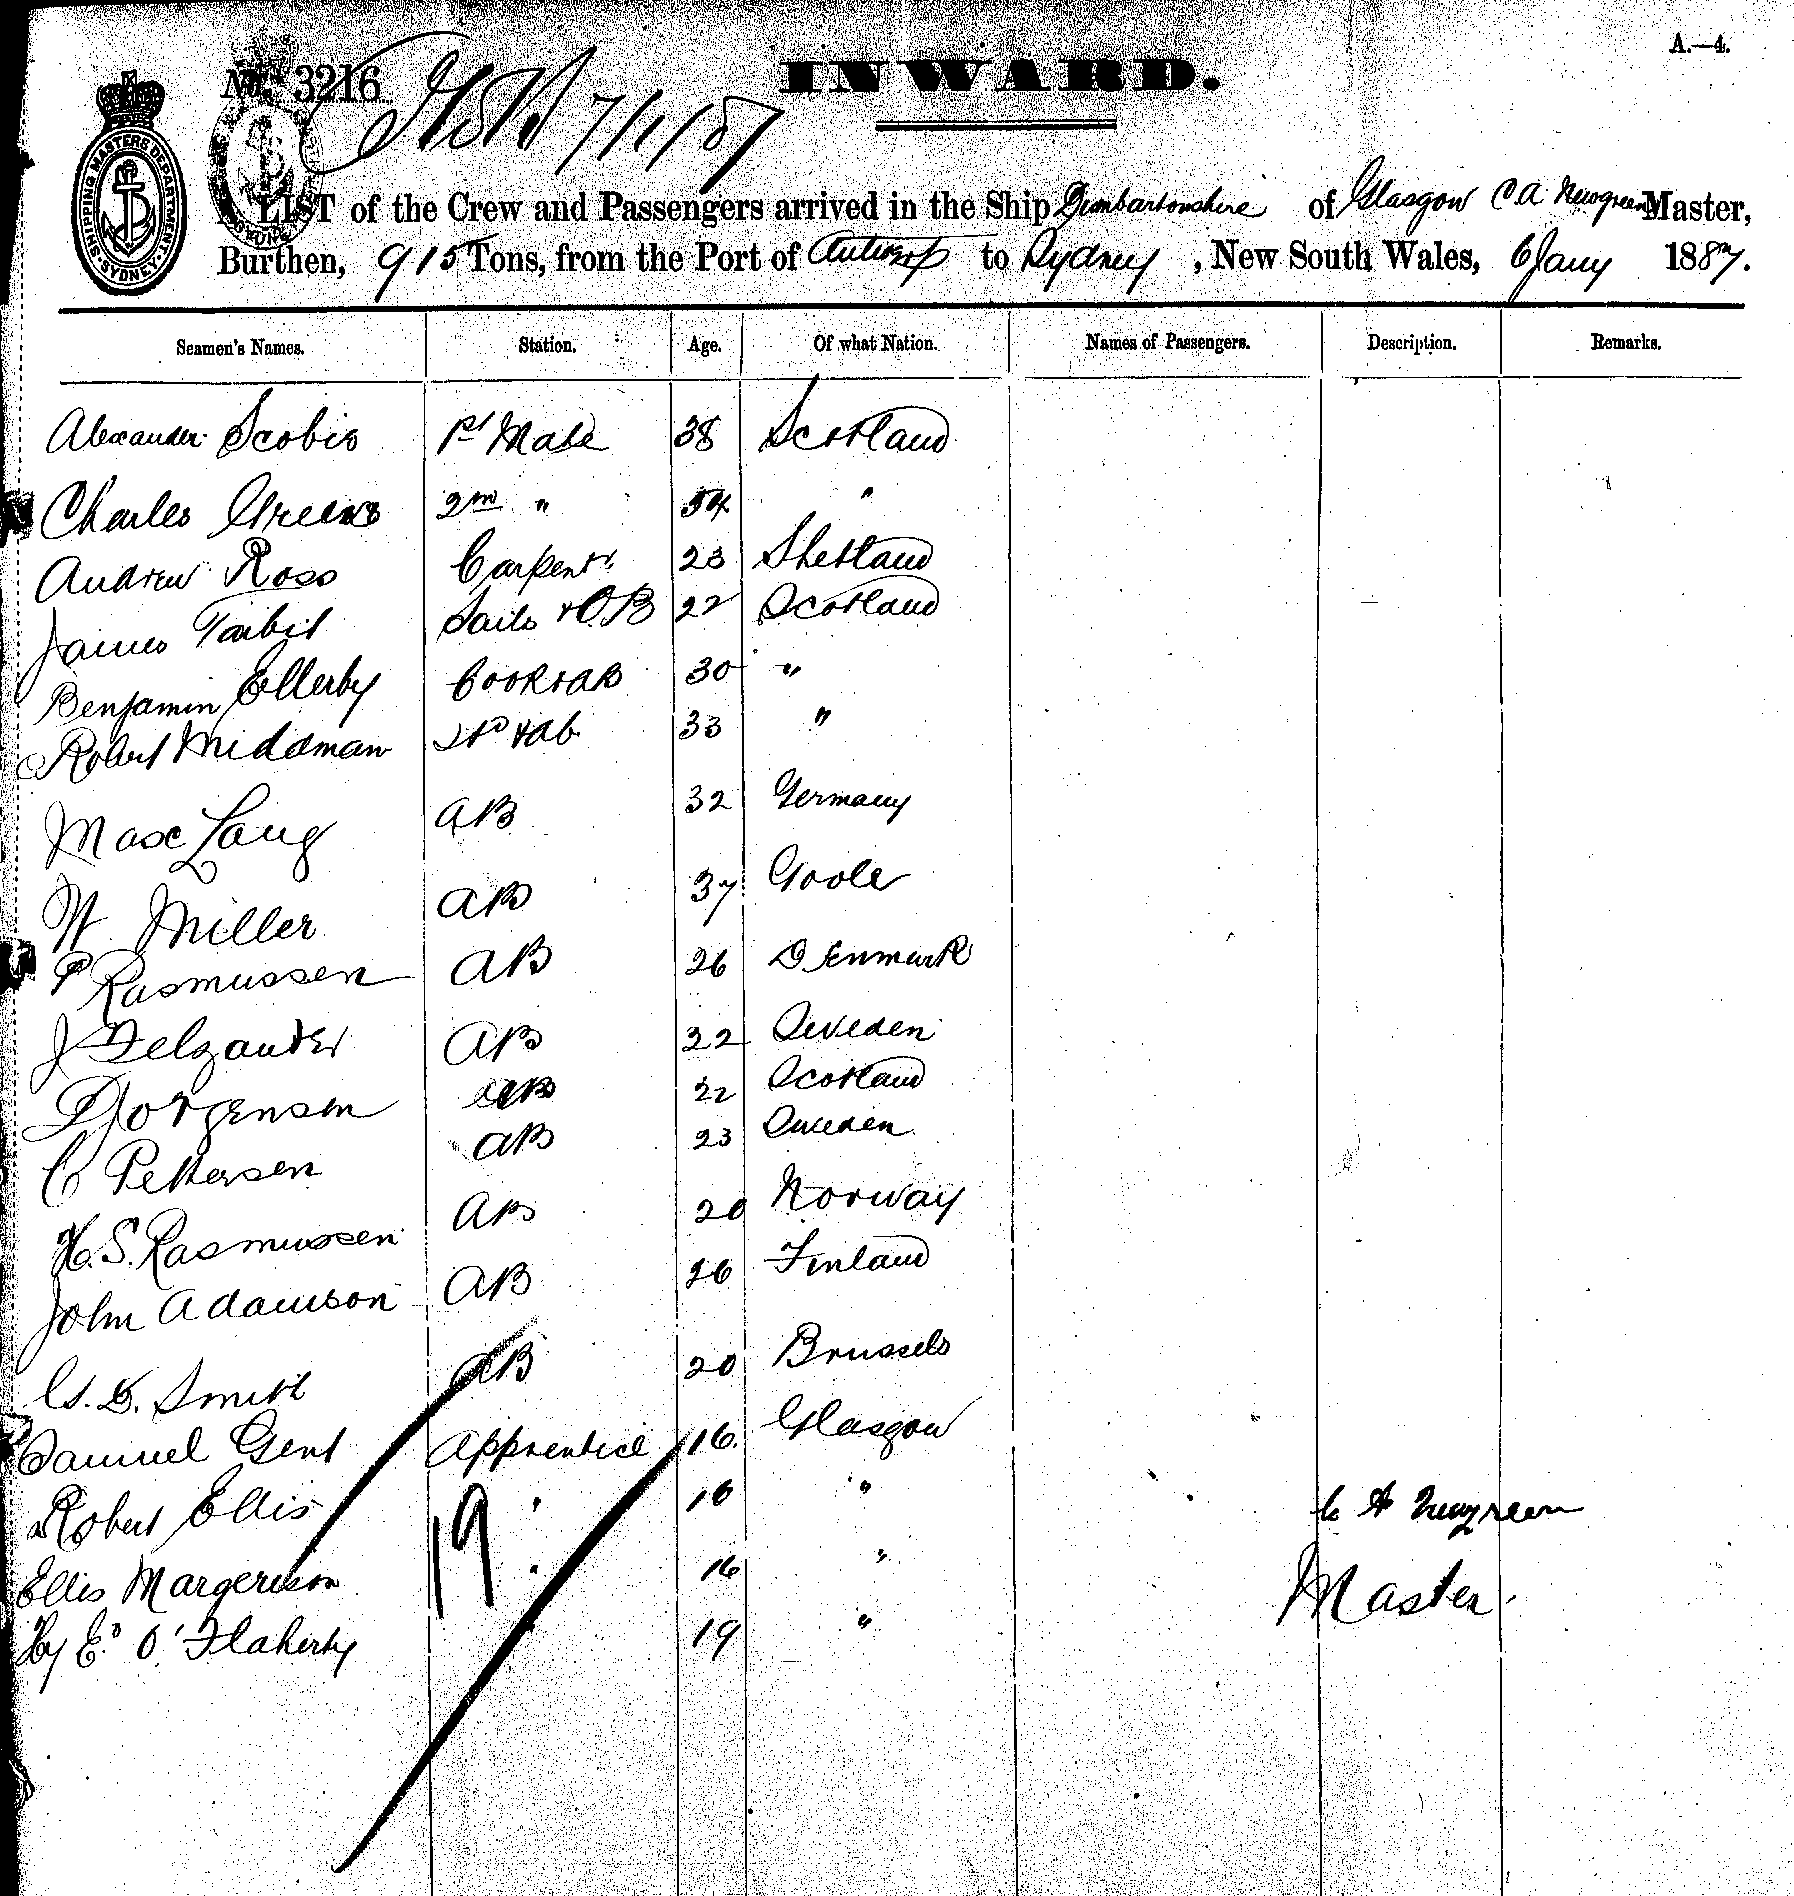 A.—4.
No. 3216
INWARD.
7/1/87
SHIPPING MASTERS DEPARTMENT SYDNEY
LIST of the Crew and Passengers arrived in the Ship Dumbartonshire of Glasgow C A Newgreen Master,
Burthen, 915 Tons, from the Port of Antwerp to Sydney, New South Wales, 6 Jany 1887.
Seamen's Names. Station. Age. Of what Nation. Names of Passengers. Description. Remarks.
Alexander Scobie 1st Mate 38 Scotland
Charles Greens 2nd " 54 "
Andrew Ross Carpentr 23 Shetland
James Taibit Sails & OB 22 Scotland
Benjamin Ellerby Cook & AB 30 "
Robert Middman & ab 33 "
Max Lang AB 32 Germany
W Miller AB 37 Goole
P Rasmussen AB 26 Denmark
J AB 22 Sweden
Jorgensen AB 22 Scotland
C Pettersen AB 23 Sweden
H. S. Rasmussen AB 20 Norway
John Adamson AB 26 Finland
D. Smith AB 20 Brussels
Samuel Gent Apprentice 16. Glasgow
Robert Ellis " 16 "
19
C A Newgreen
Ellis Margerison " 16 "
Master.
Hy Ed O'Flaherty 19 "